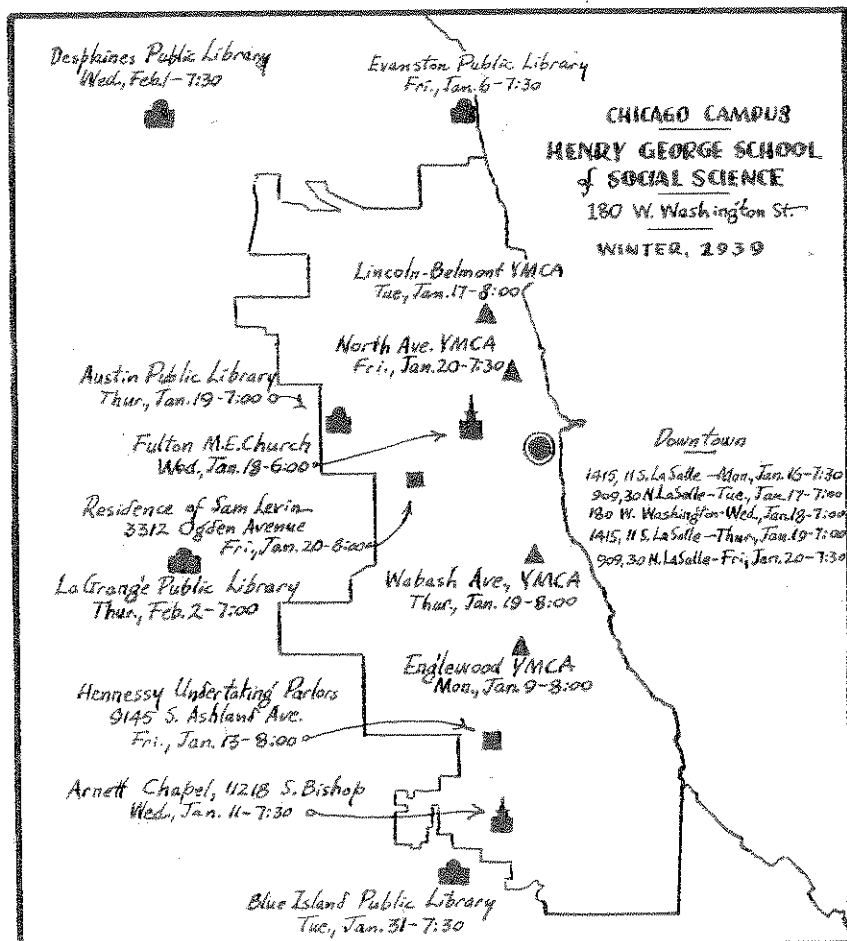 Desplaines Public Library
Wed., Feb. 1-7:30
Evanston Public Library
Fri., Jan. 6-7:30
CHICAGO CAMPUS
HENRY GEORGE SCHOOL
of SOCIAL SCIENCE
180 W. Washington St.
WINTER, 1939
Lincoln-Belmont YMCA
Tue., Jan. 17-8:00
North Ave. YMCA
Fri., Jan. 20-7:30
Austin Public Library
Thur., Jan. 19-7:00
Fulton M.E. Church
Wed., Jan. 18-6:00
Residence of Sam Levin
3312 Ogden Avenue
Fri., Jan. 20-8:00
Downtown
1415, 11 S. LaSalle-Mon., Jan. 16-7:30
909, 30 N. LaSalle-Tue., Jan. 17-7:00
180 W. Washington-Wed., Jan. 18-7:00
1415, 11 S. LaSalle-Thur., Jan. 19-7:00
909, 30 N. LaSalle-Fri., Jan. 20-7:30
LaGrange Public Library
Thur., Feb. 2-7:00
Wabash Ave., YMCA
Thur., Jan. 19-8:00
Englewood YMCA
Mon., Jan. 9-8:00
Hennessy Undertaking Parlors
9145 S. Ashland Ave.
Fri., Jan. 13-8:00
Arnett Chapel, 11218 S. Bishop
Wed., Jan. 11-7:30
Blue Island Public Library
Tue., Jan. 31-7:30